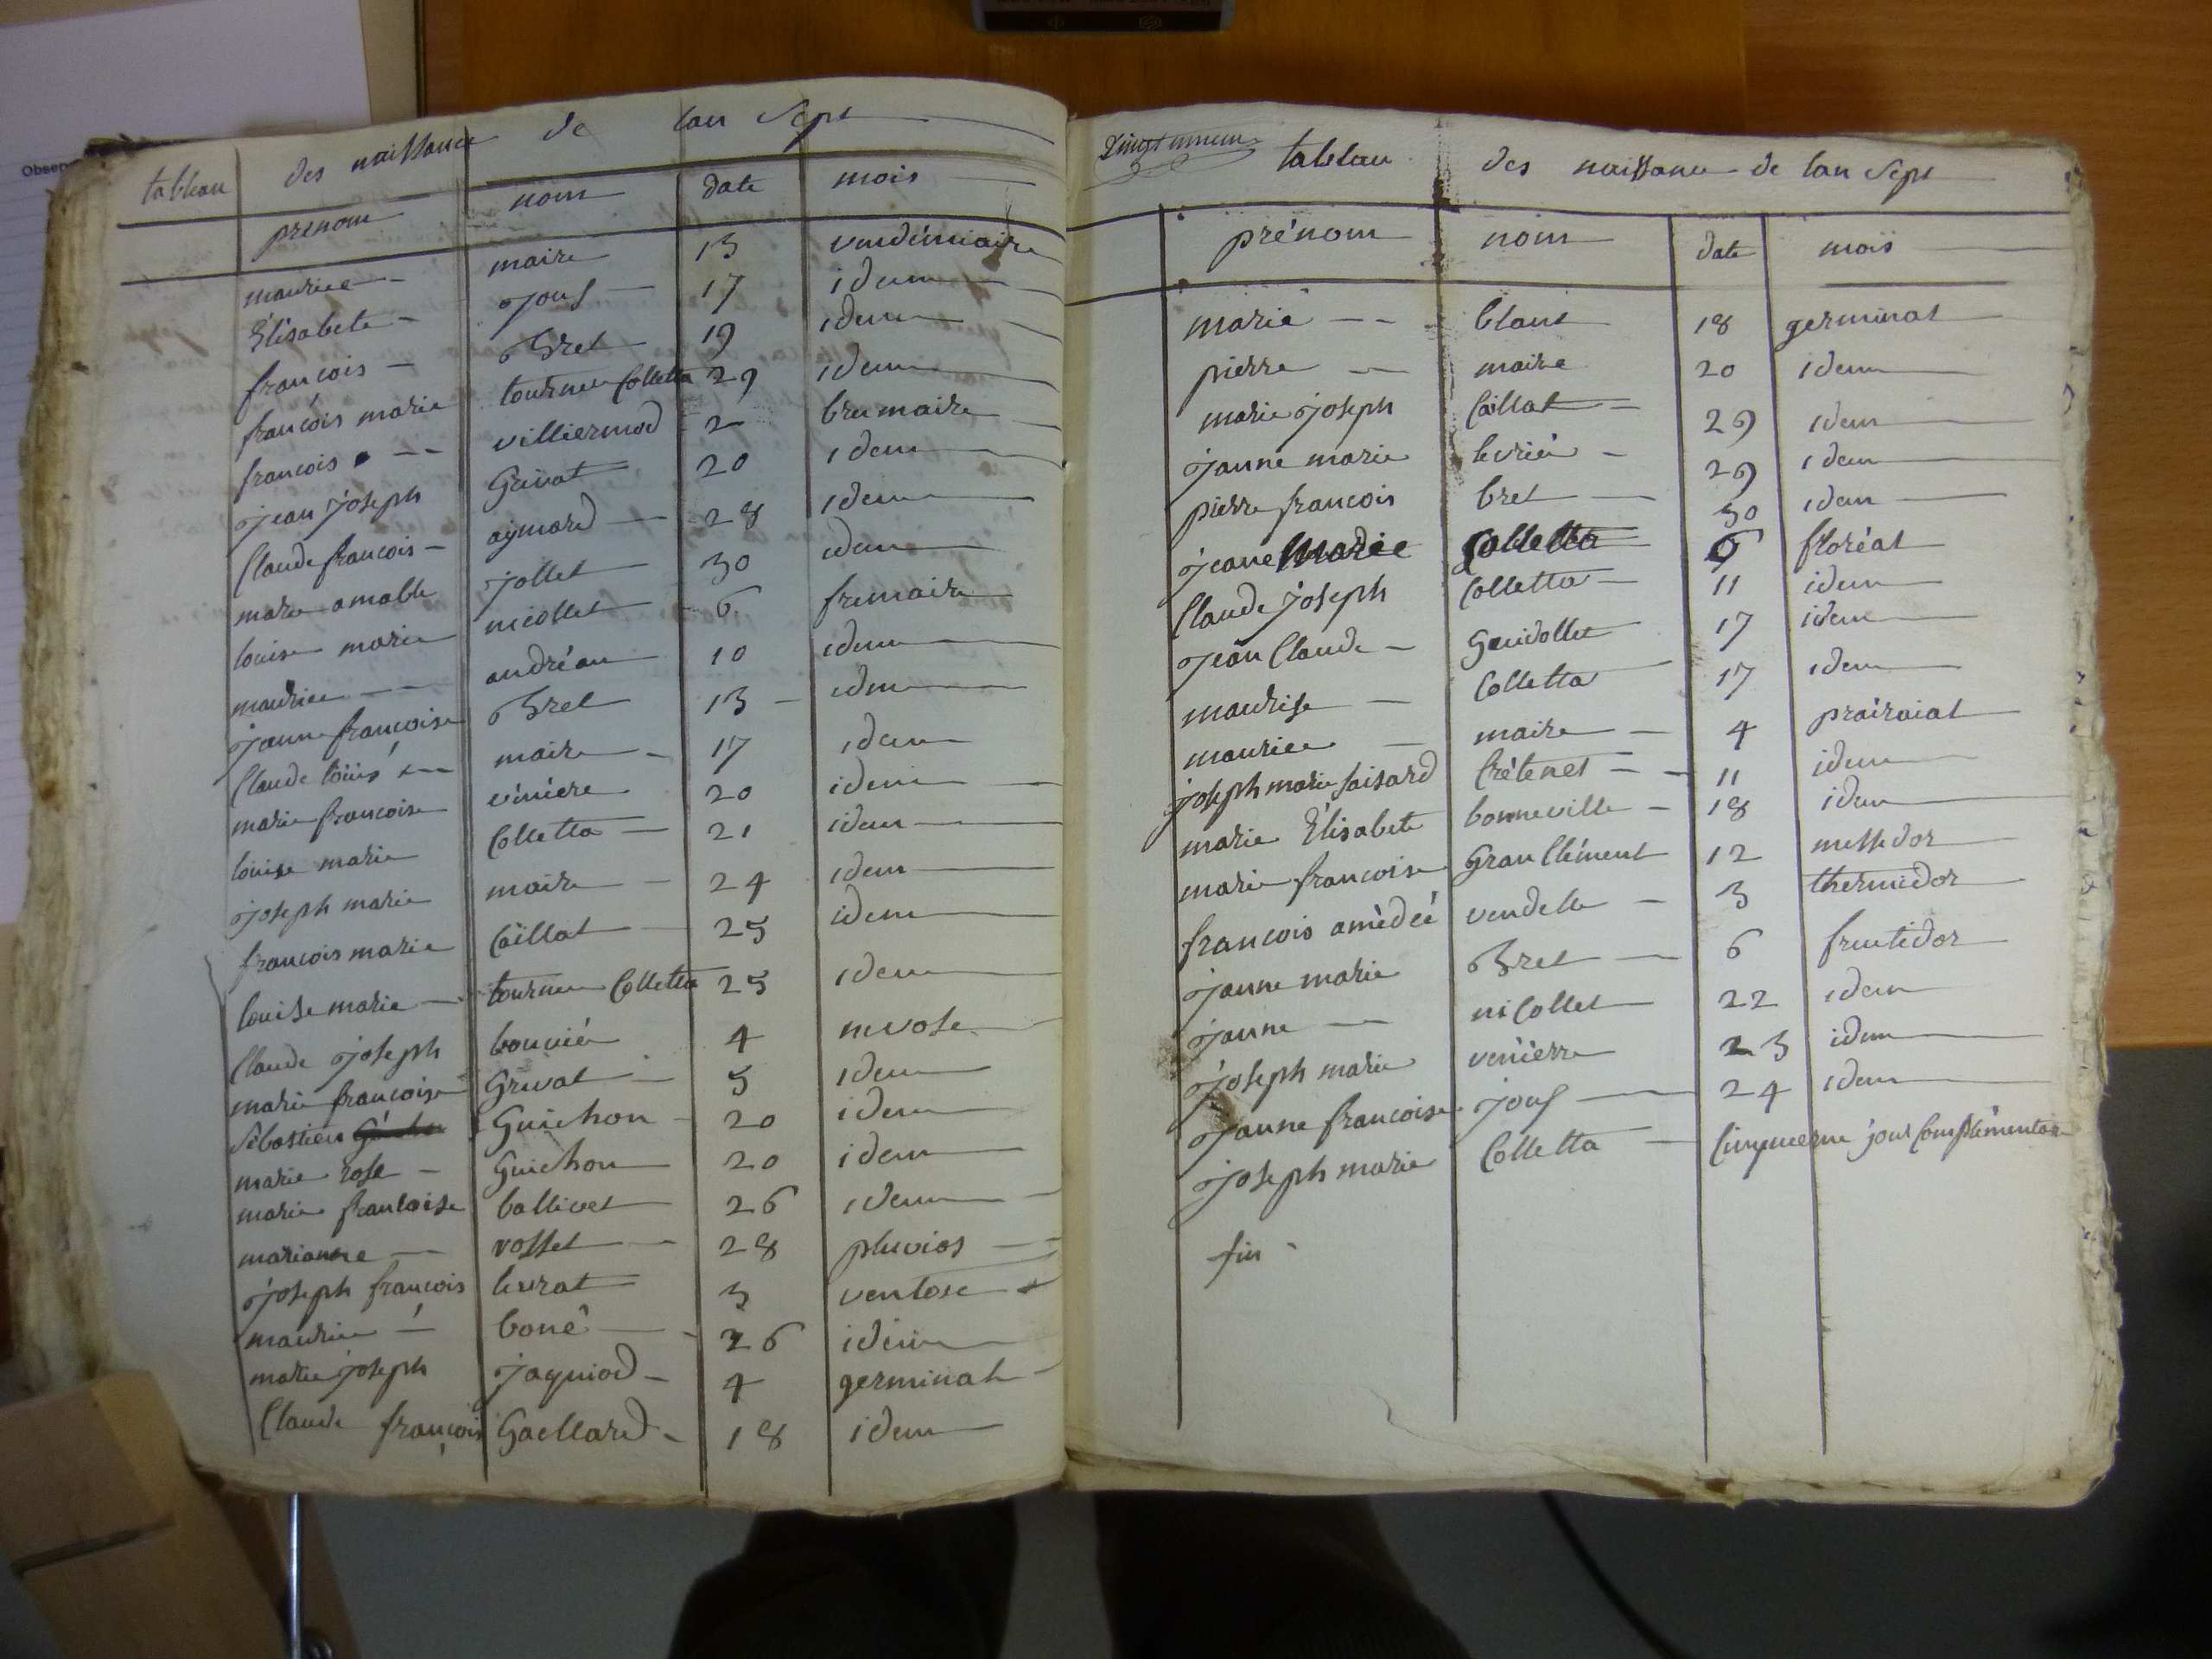 Obser
tableau des naissance de lan Sept
prenom nom date mois
maurice maire 13 vendémiaire
Élisabete jouf 17 idem
françois Bret 19 idem
françois marie tournu Colletta 29 idem
françois villiermod 2 brumaire
jean joseph Grivat 20 idem
Claude francois aymard 28 idem
marie amable jollet 30 idem
louise marie nicollet 6 frimaire
maurice andréau 10 idem
janne francoise Bret 13 idem
Claude louis maire 17 idem
marie francoise vénière 20 idem
louise marie Colletta 21 idem
joseph marie maire 24 idem
francois marie Caillat 25 idem
louise marie tournu Colletta 25 idem
Claude joseph bouvié 4 nivose
marie francoise Grivat 5 idem
Sébastien Guichon 20 idem
marie rose Guichon 20 idem
marie francoise ballivet 26 idem
marianne rosset 28 pluvios
joseph francois levrat 3 ventose
maurice boné 26 idem
marie joseph jaquiod 4 germinal
Claude françois Gaellard 18 idem
vingt unieme tableau des naissance de lan Sept
prénom nom date mois
marie blanc 18 germinal
pierre maire 20 idem
marie joseph Caillat 29 idem
janne marie levrié 29 idem
pierre francois bret 30 idem
jeane Marie Colletta 6 floréal
Claude joseph Colletta 11 idem
jean Claude Gauidollet 17 idem
maurise Colletta 17 idem
maurice maire 4 prairaial
joseph marie faisard Crétenet 11 idem
marie Élisabete bonneville 18 idem
marie francoise Gran Clément 12 messedor
francois amèdeé vendelle 3 thermidor
janne marie Bret 6 frutidor
janne niCollet 22 idem
joseph marie venièrre 23 idem
janne francoise jouf 24 idem
joseph marie Colletta Cinquieme jour Complémentaire
fin